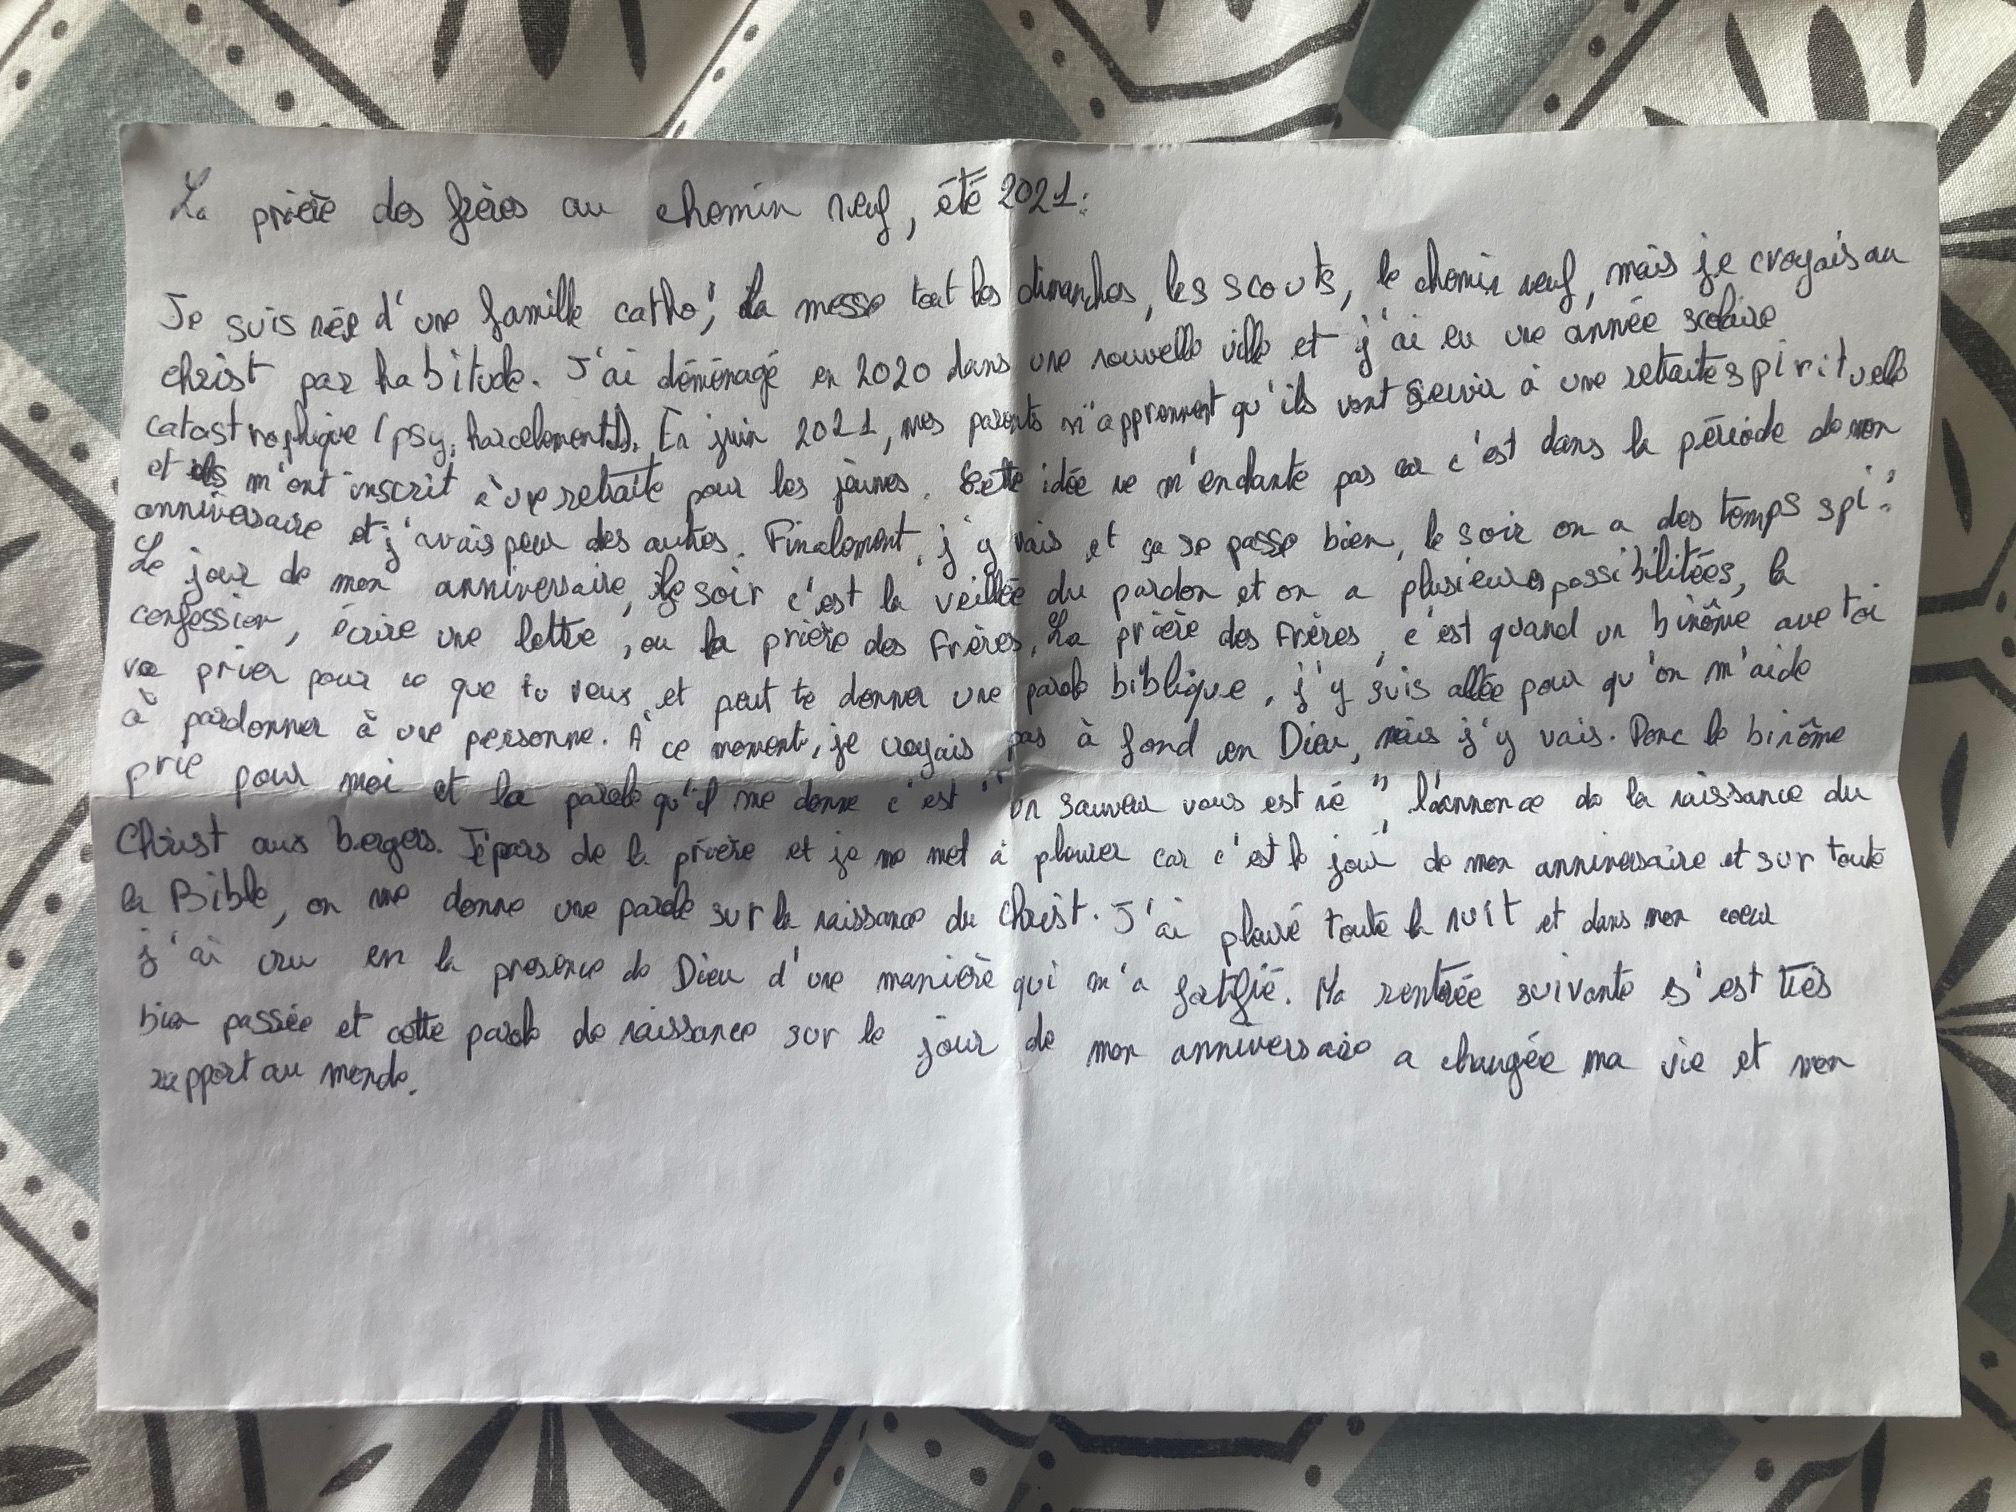 La prière des frères au chemin neuf, été 2021:
Je suis née d'une famille "catho", la messe tout les dimanches, les scouts, le chemin neuf, mais je croyais au
christ par habitude. J'ai déménagé en 2020 dans une nouvelle ville et j'ai eu une année scolaire
catastrophique (psy, harcelement). En juin 2021, mes parents m'apprennent qu'ils vont servir à une retraite spirituelle
et ils m'ont inscrit à une retraite pour les jeunes. Cette idée ne m'enchante pas car c'est dans la période de mon
anniversaire et j'avais peur des autres. Finalement, j'y vais et ça se passe bien, le soir on a des temps "spi".
Le jour de mon anniversaire, le soir c'est la veillée du pardon et on a plusieurs possibilitées, la
confession, écrire une lettre, ou la prière des frères. La prière des Frères, c'est quand un binôme ave toi
va prier pour ce que tu veux et peut te donner une parole biblique. j'y suis allée pour qu'on m'aide
à pardonner à une personne. À ce moment, je croyais pas à fond en Dieu, mais j'y vais. Donc le binôme
prie pour moi et la parole qu'il me donne c'est "un sauveur vous est né", l'annonce de la naissance du
Christ aux bergers. Je pars de la prière et je me met à pleurer car c'est le jour de mon anniversaire et sur toute
la Bible, on me donne une parole sur la naissance du Christ. J'ai pleuré toute la nuit et dans mon coeur
j'ai cru en la presence de Dieu d'une manière qui m'a fortifié. Ma rentrée suivante s'est très
bien passée et cette parole de naissance sur le jour de mon anniversaire a changée ma vie et mon
rapport au monde.